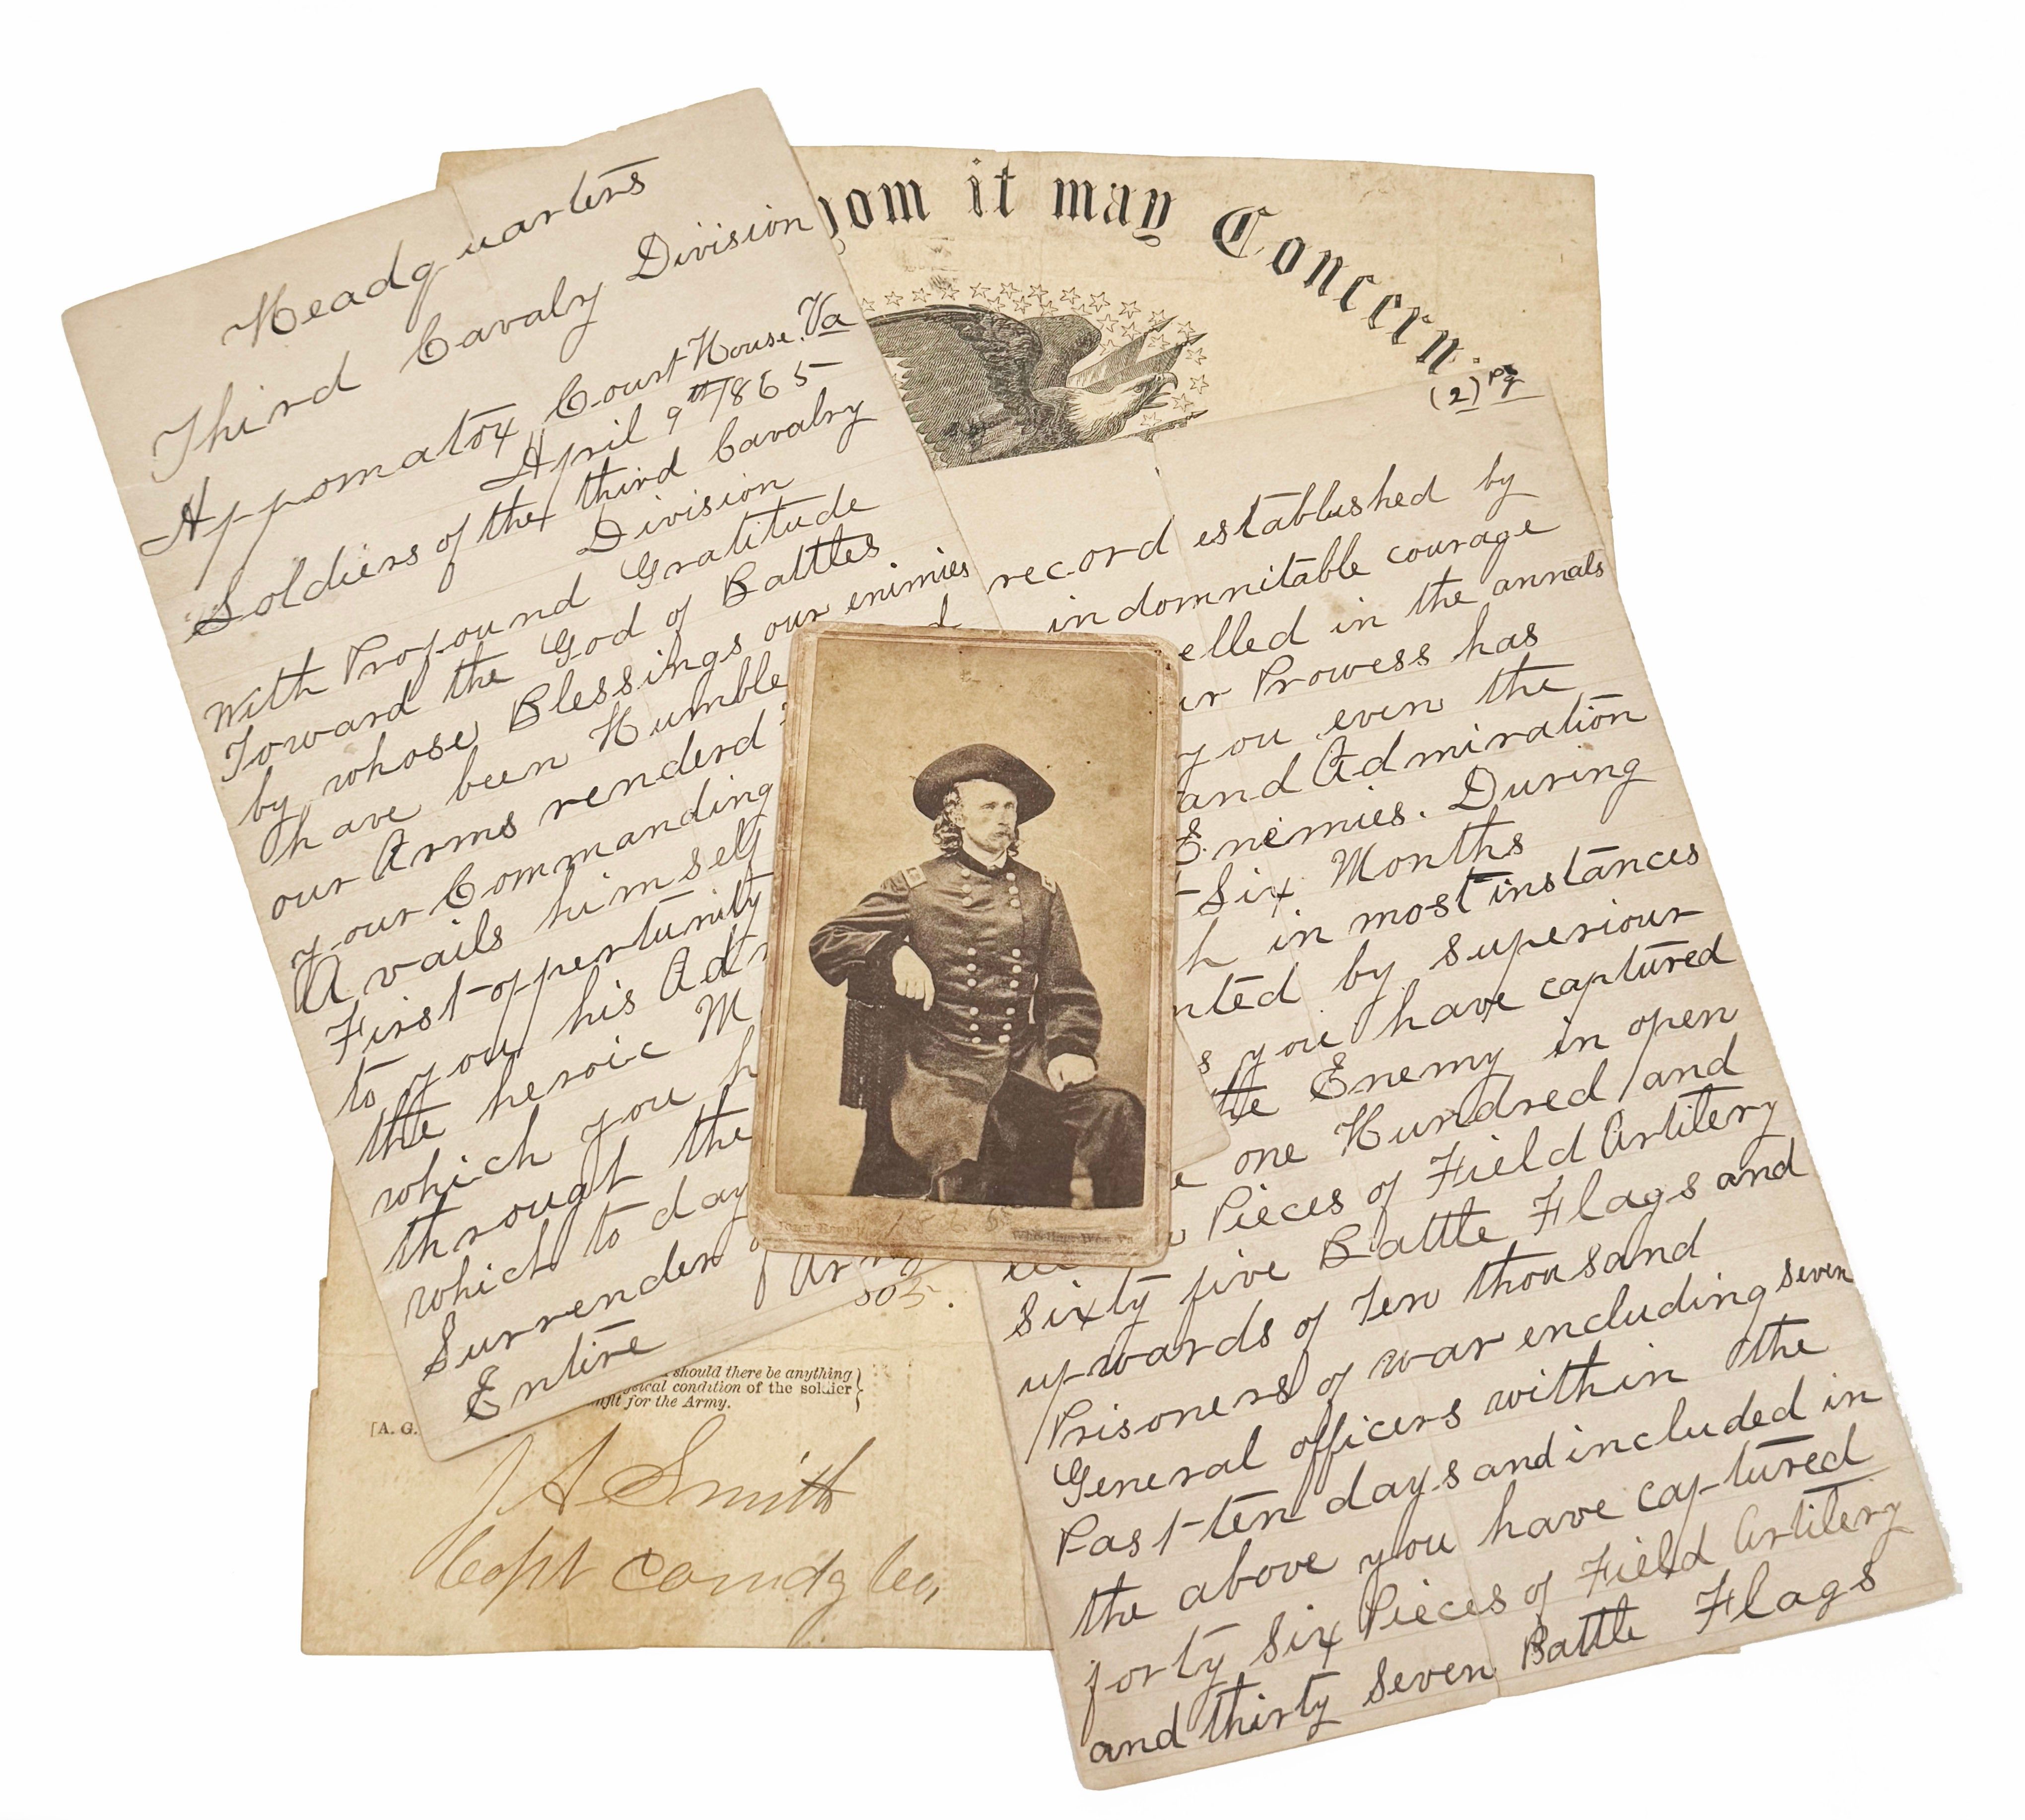 Headquarters
Third Cavaly Division
Appomatox Court House. Va
April 9th 1865
Soldiers of the third Cavalry
Division
With Profound Gratitude
Toward the God of Battles
by whose Blessings our enimies
have been Humble
our Arms renderd
your Commanding
Avails himself
First oppertunity
to you his
the heroic
which you
througt the
which to day
Surrender
Entire
om it may Concern.
(2) pg
record established by
indomnitable courage
elled in the annals
ur Prowess has
you even the
and Admiration
Enemies. During
Six Months
h in most instances
nted by superiour
s you have captured
the Enemy in open
one Hundred and
Pieces of Field Artilery
Sixty five Battle Flags and
upwards of Ten thousand
Prisoners of war encluding seven
General officers within the
Past ten days and included in
the above you have captured
forty Six Pieces of Field Artilery
and thirty seven Battle Flags
1865
should there be anything
sical condition of the soldier
nfit for the Army.
[A. G.
J A Smith
Capt Comdg Co,